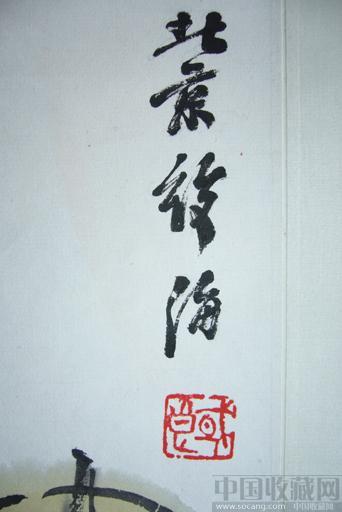 北京後海
中国收藏网
http://www.socang.com 中国收藏网